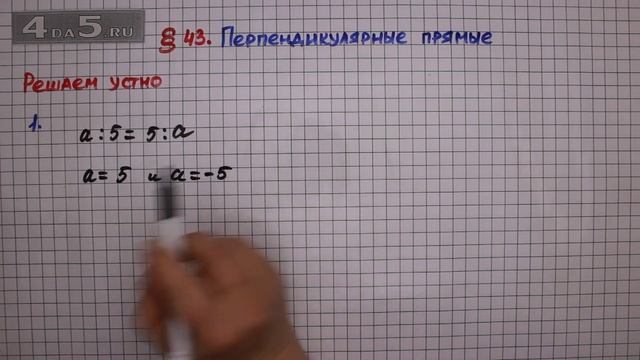 4DA5.RU
§ 43. Перпендикулярные прямые
Решаем устно
1.
a : 5 = 5 : a
a = 5 и a = -5